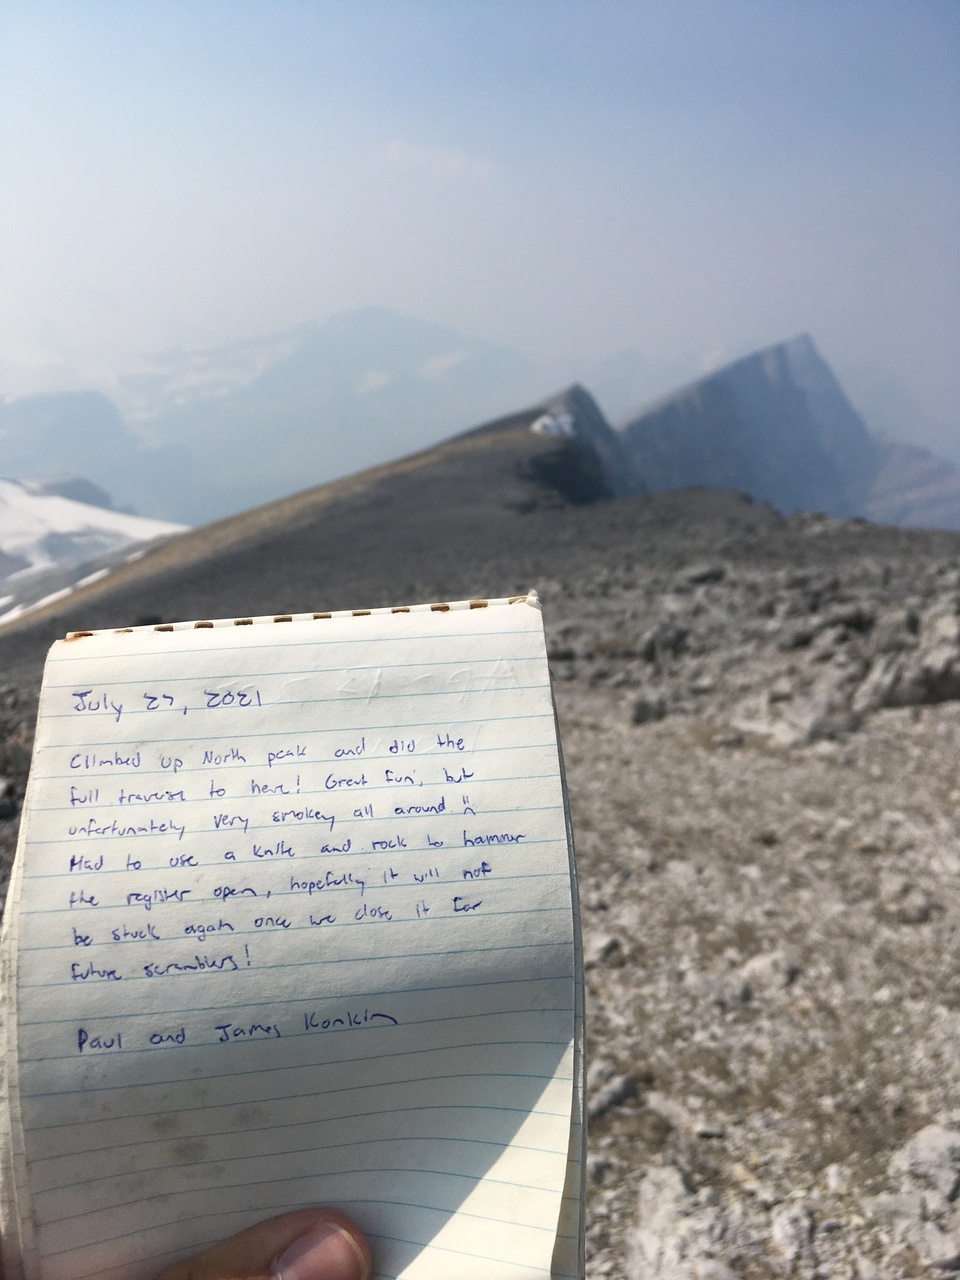 July 27, 2021
Climbed up North peak and did the
full traverse to here! Great fun, but
unfortunately very smokey all around :(
Had to use a knife and rock to hammer
the register open, hopefully it will not
be stuck again once we close it for
future scramblers!
Paul and James Konkin